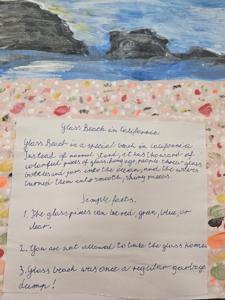 Glass Beach in California
Glass Beach is a special beach in California
Instead of normal sand, it has thousand of
colourful pieces of glass. Long ago, people threw glass
bottles and jars into the ocean, and the waves
turned them into smooth, shiny pieces.
Simple facts.
1. The glass pieces can be red, green, blue, or
clear.
2. You are not allowed to take the glass home.
3. Glass beach was once a regular garbage
dump!